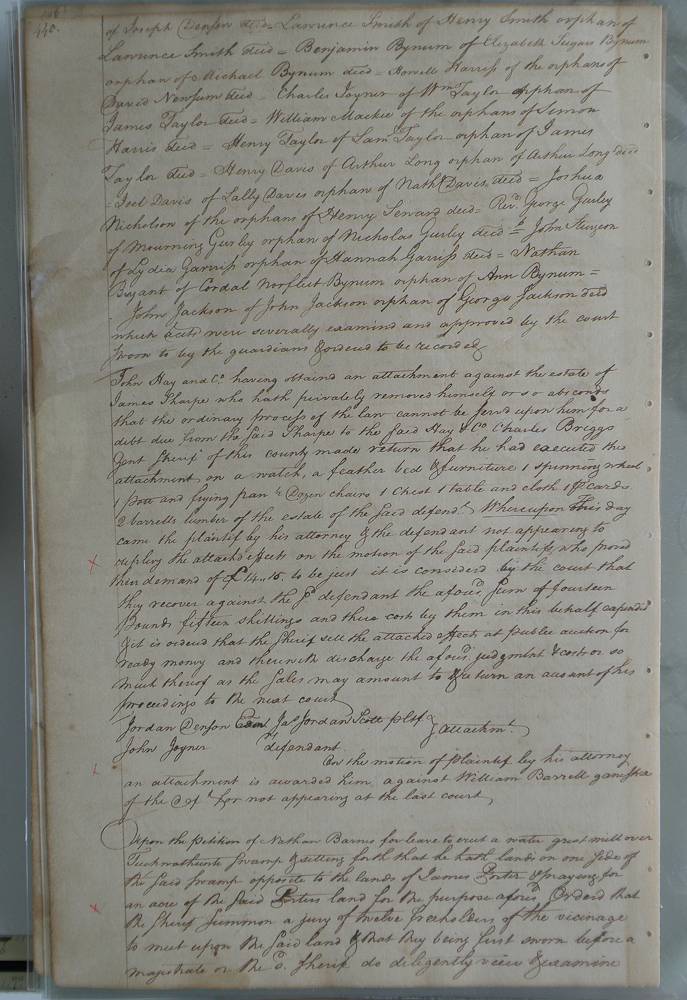 140.
of Joseph Denson decd = Lawrence Smith of Henry Smith orphan of
Lawrence Smith decd = Benjamin Bynum of Elizabeth Sugars Bynum
orphan of Michael Bynum decd = Howell Harriss of the orphans of
David Newsum decd = Charles Joyner of Wm Taylor orphan of
James Taylor decd = William Mackie of the orphans of Simon
Harris decd = Henry Taylor of Saml Taylor orphan of James
Taylor decd = Henry Davis of Arthur Long orphan of Arthur Long decd
= Joel Davis of Lally Davis orphan of Nathl Davis, decd = Joshua
Nicholson of the orphans of Henry Seward decd = Revd. George Gurley
of Mourning Gurley orphan of Nicholas Gurley decd = John
of Lydia Garriss orphan of Hannah Garriss decd = Nathan
Bryant of Cordal Norfleet Bynum orphan of Ann Bynum =
John Jackson of John Jackson orphan of George Jackson decd
which accts were severally examind and approved by the court
sworn to by the guardians & ordered to be recorded
John Hay and Co. having obtaind an attachment against the estate of
James Tharpe who hath privately removed himself or so absconds
that the ordinary process of the law cannot be servd upon him for a
debt due from the said Tharpe to the said Hay & Co. Charles Briggs
Gent Sherif of this county made return that he had executed the
attachment on a watch, a feather bed & furniture 1 spinning wheel
1 pott and frying pan ½ Dozen chairs 1 Chest 1 table and cloth 1 pr cards
2 barrells lumber of the estate of the said defendt. Whereupon this day
came the plaintif by his attorney & the defendant not appearing to
replevy the attachd effects on the motion of the said plaintiffs, who proved
their demand of £14..15. to be just it is considerd by the court that
they recover against the sd. defendant the aforesd. sum of fourteen
Pounds fifteen shillings and there costs by them in this behalf expended
& it is ordered that the Sherif sell the attached effects at publec auction for
ready money and therewith discharge the aforesd. judgment & costs or so
much thereof as the sales may amount to & return an account of his
proceedings to the next court
Jordan Denson Jas Jordan Scott pltf } attachmt.
John Joyner defendant
On the motion of plaintif by his attorney
an attachment is awarded him against William Barrell garnishee
of the deft. for not appearing at the last court
Upon the Petition of Nathan Barnes for leave to erect a water grist mill over
swamp & setting forth that he hath lands on one side of
the said swamp opposite to the lands of James Porter & praying for
an acre of the said Porters land for the purpose aforesd. Orderd that
the Sherif summon a jury of twelve freeholders of the vicinage
to meet upon the said land & that they being first sworn before a
magistrate or the sd. Sherif do diligently view & examine